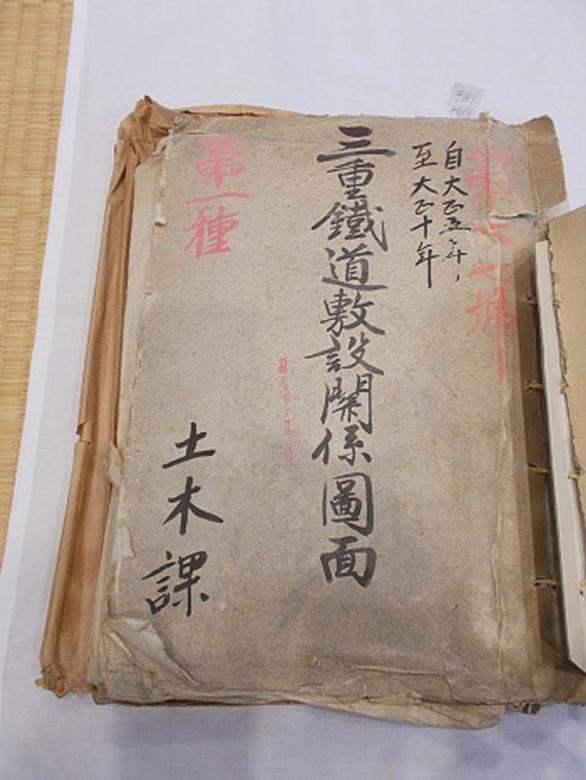 自大正五年
至大正十年
三重鐵道敷設關係圖面
第一種
土木課